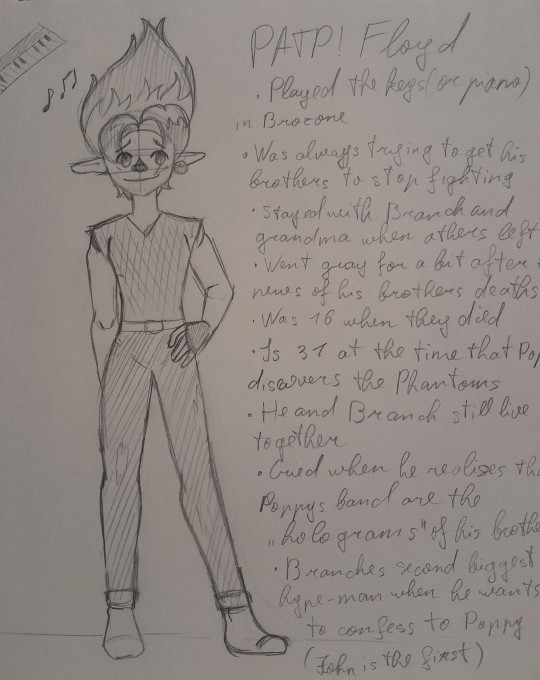 PATP! Floyd
• Played the keys (or piano)
in Brozone
• Was always trying to get his
brothers to stop fighting
• Stayed with Branch and
grandma when others left
• Went gray for a bit after
news of his brothers deaths
• Was 16 when they died
• Is 31 at the time that
discovers the Phantoms
• He and Branch still live
together
• Cried when he realises
Poppys band are the
„holograms" of his
• Branches second biggest
hype-man when he wants
to confess to Poppy
(John is the first)